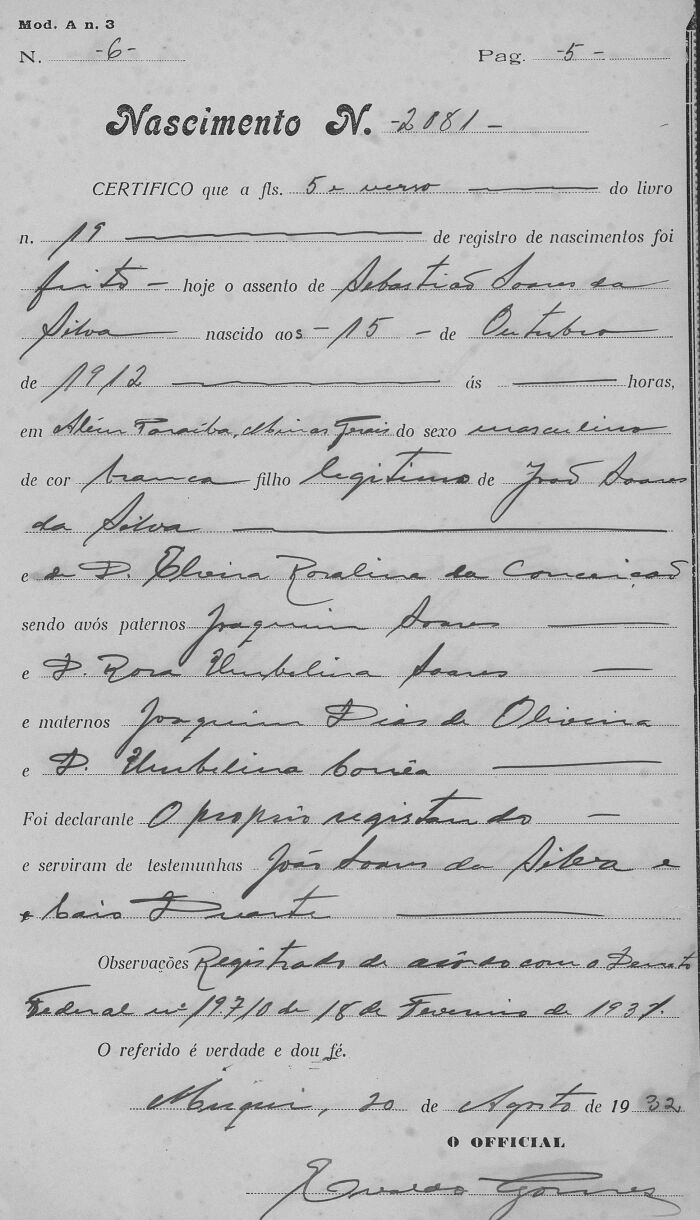 Mod. A n. 3
N. -6- Pag. -5-
Nascimento N. -2081-
CERTIFICO que a fls. 5 e verso do livro
n. 19 de registro de nascimentos foi
feito - hoje o assento de Sebastião Soares da
Silva nascido aos -15- de Outubro
de 1912 ás horas,
em Além Paraíba, Minas Gerais do sexo masculino
de cor branca filho legitimo de João Soares
da Silva
e de D. Elveira Rosalina da Conceição
sendo avós paternos Joaquim Soares
e D. Rosa Umbelina Soares
e maternos Joaquim Dias de Oliveira
e D. Umbelina Corrêa
Foi declarante O proprio registando
e serviram de testemunhas João Soares da Silva e
e Caio Duarte
Observações Registrado de acôrdo com o Decreto
Federal nº 19.710 de 18 de Fevereiro de 1931.
O referido é verdade e dou fé.
20 de Agosto de 1932
O OFFICIAL
Gomes